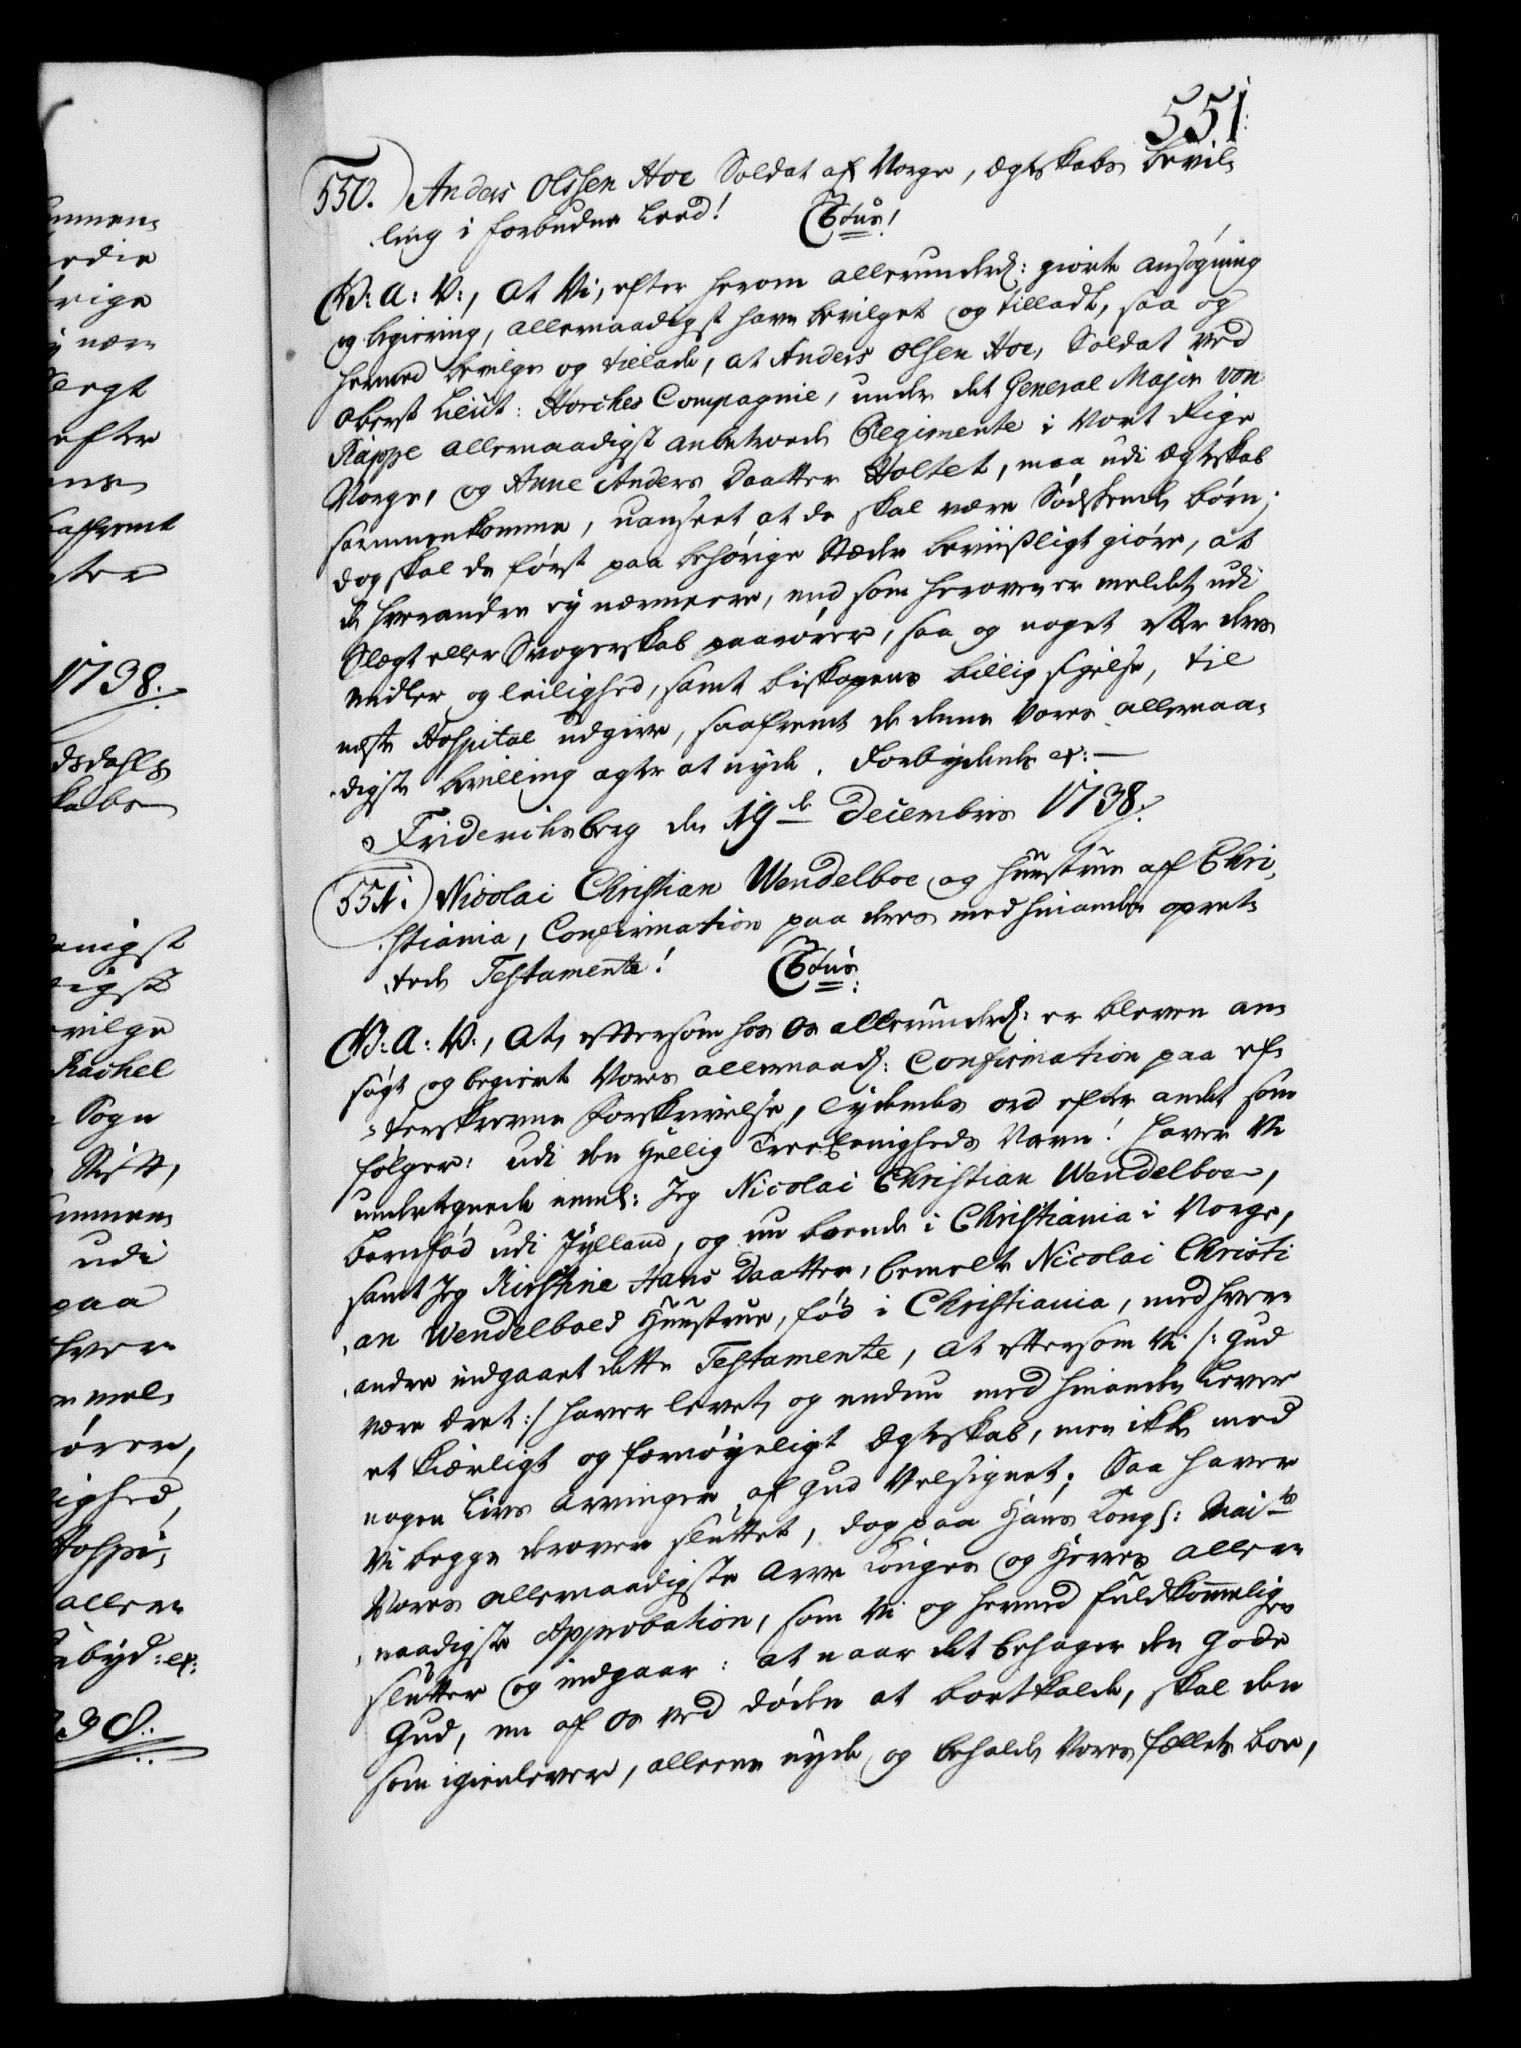 551.
550. Anders Olssen Hoe Soldat af Norge, Ægteskabs Bevil-
ling i forbudne Leed! C6tus!
G: A: V:, At Vi, efter herom allerunderd: giorte ansøgning
og begiering, allernaadigst have bevilget og tilladt, saa og
hermed bevilge og tillade, at Anders Olsen Hoe, Soldat ved
Oberst Lieut: Horches Compagnie, under det General Major von
Rappe allernaadigst anbetroede Regimente i Vort Rige
Norge, og Anne Anders Daatter Holtet, maa udi Ægteskab
sammenkomme, uanseet at de skal være Sødskende børn;
dog skal de først paa behørige Stæder beviißligt giøre, at
de hverandre ey nærmere, end som herovener meldet, udi
Slægt eller Svogerskab paarører, saa og noget efter deres
midler og leilighed, samt biskopens billig sigelse, til
næste Hospital udgive, saafremt de denne Vores allernaa-
digste bevilling agter at nyde. Forbydende etc:
Friderichsberg den 19de Decembris 1738.
551. Nicolai Christian Wendelboe og Hustrue af Chri-
stiania, Confirmation paa deres med hinanden opret-
tede Testamente! C6tus
G: A: V:, At, eftersom hos Os allerunderd: er bleven an-
søgt og begiert Vores allernaad: Confirmation paa ef-
terskrevne Forskrivelse, lydendes ord efter andet som
følger: Udi den Hellig Treeenigheds Navn! haver Vi
undertegnede neml: Jeg Nicolai Christian Wendelboe,
barnfød udi Jylland, og nu boende i Christiania i Norge,
samt Jeg Kirstine Hans Daatter, bemelte Nicolai Christi-
an Wendelboes Hustrue, fød i Christiania, med hver-
andre indgaaet dette Testamente, at eftersom Vi /: Gud
være æret :/ haver levet, og endnu med hinanden lever
et kiærligt og fornøyeligt Ægteskab, men ikke med
nogen Livs Arvinger af Gud Velsignet; Saa haver
Vi begge derover sluttet, dog paa Hans Kongl: Maits
Vores allernaadigste Arve Konges og Herres aller-
naadigste Approbation, som Vi og hermed fuldkommeligen
slutter og indgaar: at naar det behager den Gode
Gud, en af Os ved døden at bortkalde, skal den
som igienlever, alleene nyde og beholde Vores fælleds boe,
1738.